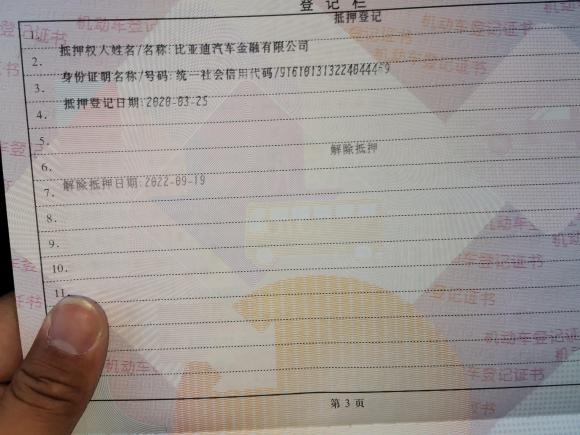 登记栏
抵押登记
1.
抵押权人姓名/名称:比亚迪汽车金融有限公司
2.
身份证明名称/号码:统一社会信用代码/
3.
抵押登记日期:2020-03-25
4.
5.
解除抵押
6.
解除抵押日期:2022-09-19
7.
8.
9.
10.
11.
第3页
机动车登记证书